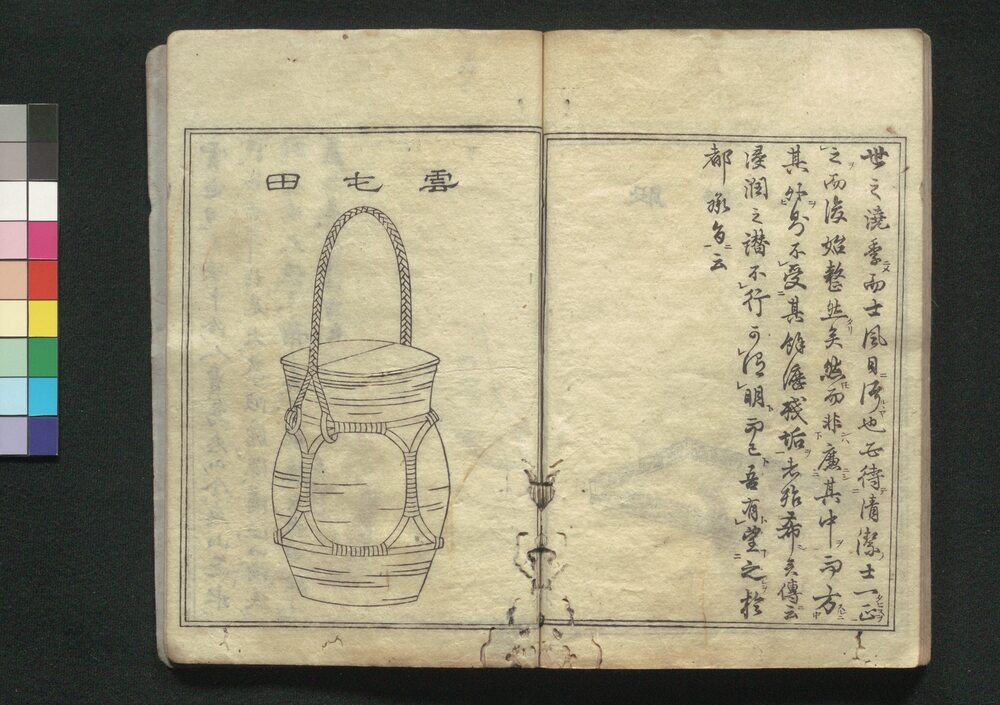 世之澆季而士風日汚也必待清潔士一正
之而後始整然矣然而非廉其中而方
其外則不受其餘瀝残垢者殆希矣傳云
浸潤之譖不行可謂明而已吾有望之於
都承旨云
雲屯田